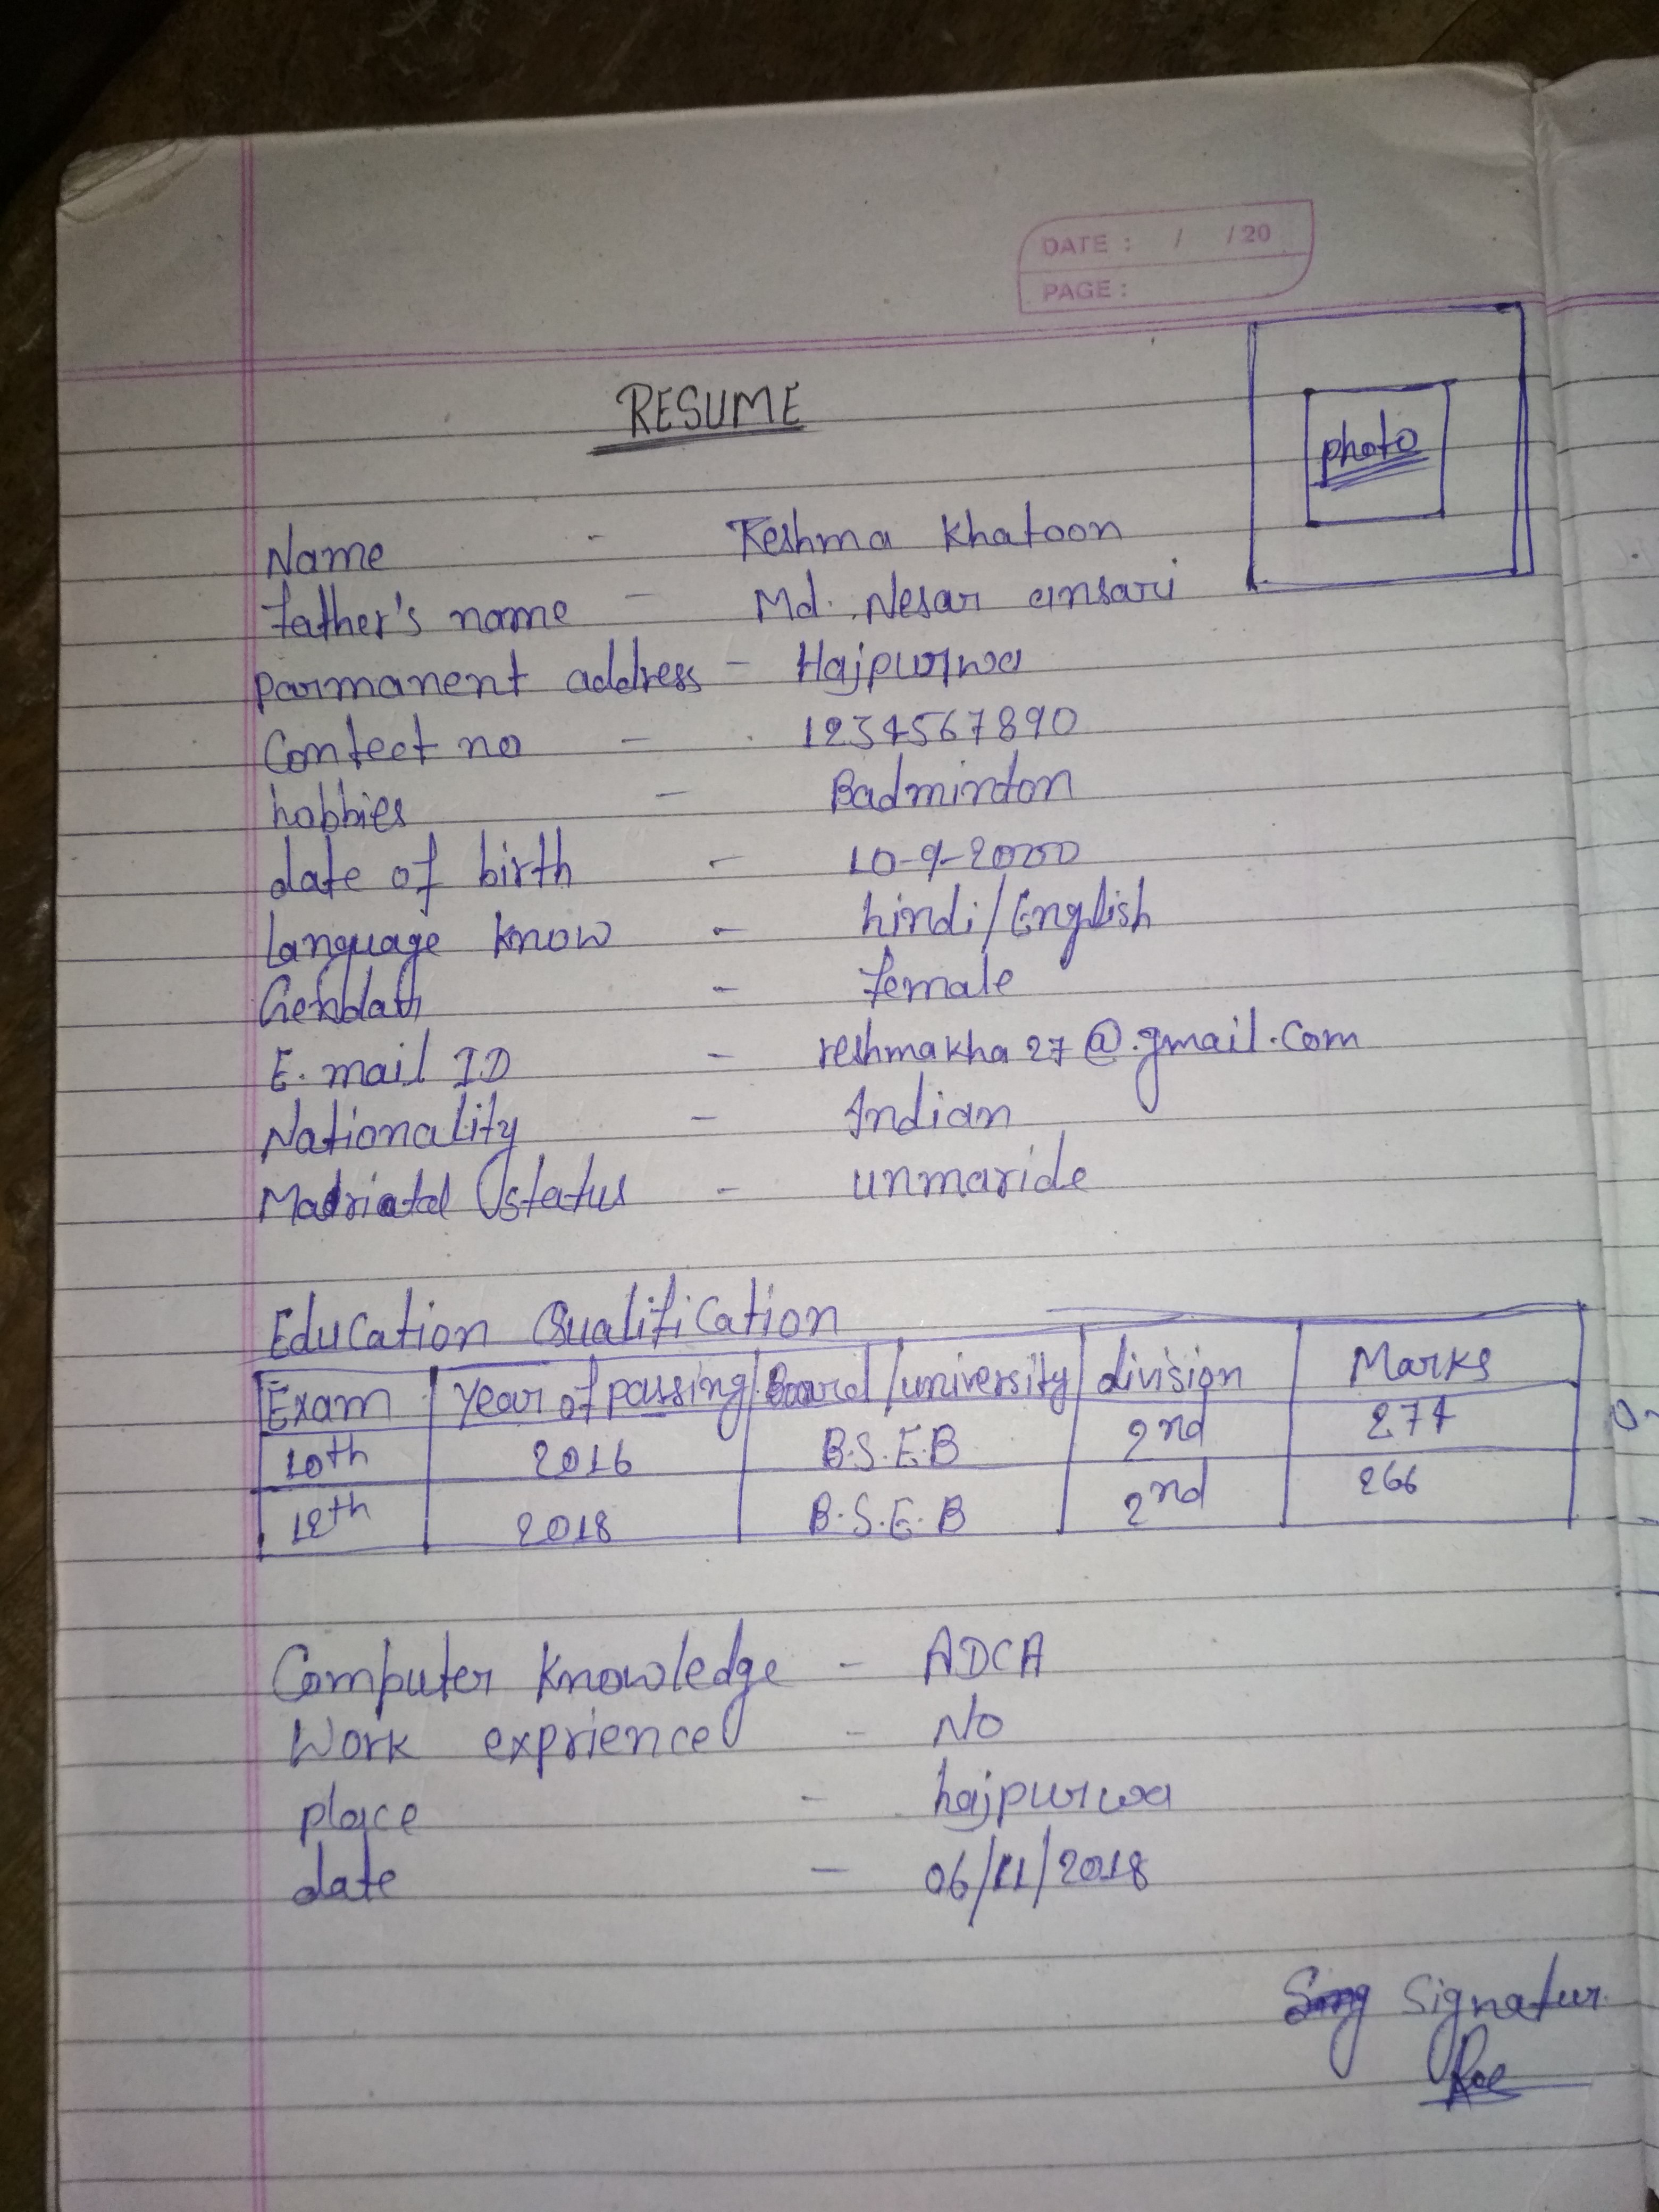 DATE : / / 20
PAGE :
RESUME
photo
Name - Reshma Khatoon
father's name - Md. Nesar ansari
parmanent address - Hajpurwa
Contect no - 1234567890
hobbies - Badminton
date of birth - 10-9-2000
language know - hindi/English
Gendar - female
E.mail ID - reshmakha27@.gmail.com
Nationality - Indian
status - unmaride
Education Qualification
Exam Year of passing Board/university division Marks
10th 2016 B.S.E.B 2nd 274
12th 2018 B.S.E.B 2nd 266
Computer Knowledge - ADCA
Work exprience - No
place - hajpurwa
date - 06/11/2018
Signatur